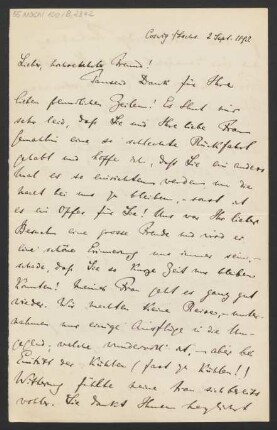 Coswig i/Sachs. 2 Sept. 1893
Lieber, hochverehrter Freund!
Tausend Dank für Ihre
lieben freundlichen Zeilen! Es thut mir
sehr leid, daß Sie und Ihre liebe Frau
Gemahlin eine so schlechte Rückfahrt
gehabt und hoffe ich, daß Sie ein anders
mal es so einrichten werden, um die
Nacht bei uns zu bleiben, sonst ist
es ein Opfer für Sie! Uns war Ihr lieber
Besuch eine grosse Freude und wird er
eine schöne Erinnerung uns immer sein,
schade, daß Sie so kurze Zeit nur bleiben
konnten! Meiner Frau geht es ganz gut
wieder. Wir machten kleine Reisen, unter-
nahmen uns einige Ausflüge in die Um-
gegend, welche wundervoll ist, – aber bei
Eintritt der kühlen (fast zu kühlen!!)
Witterung fühlte meine Frau sich bereits
wohler. Sie dankt Ihnen herzlichst